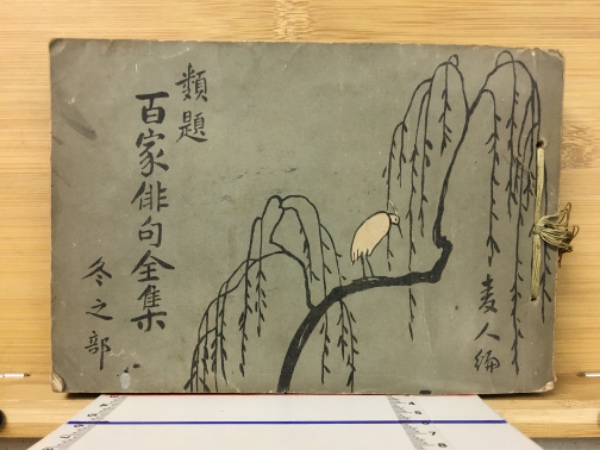 類題
百家俳句全集
冬之部
麦人編